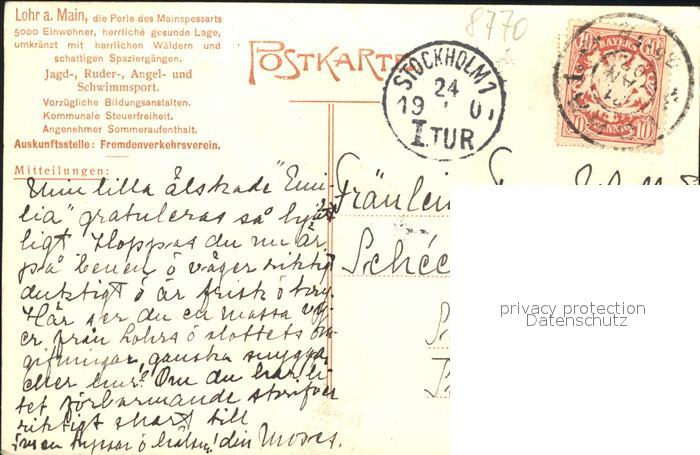 Lohr a. Main, die Perle des Mainspessarts
5000 Einwohner, herrliche gesunde Lage,
umkränzt mit herrlichen Wäldern und
schattigen Spaziergängen.
Jagd-, Ruder-, Angel- und
Schwimmsport.
Vorzügliche Bildungsanstalten.
Kommunale Steuerfreiheit.
Angenehmer Sommeraufenthalt.
Auskunftsstelle: Fremdenverkehrsverein.
POSTKARTE
8770
STOCKHOLM 1
24
19 0
I TUR
BAYERN
10 PFENNIG 10
Mitteilungen:
Min lilla älskade "Emi-
lia" gratuleras så hjärt-
ligt. Hoppas du nu är
på benen o väger riktigt
duktigt o är frisk o
Här ser du en massa vy-
er från Lohrs o slottets om-
gifningar, ganska snygga
eller hur? Om du har li-
tet förbarmande skrif
riktigt snart till
din Moses.
Fräulein
privacy protection
Datenschutz